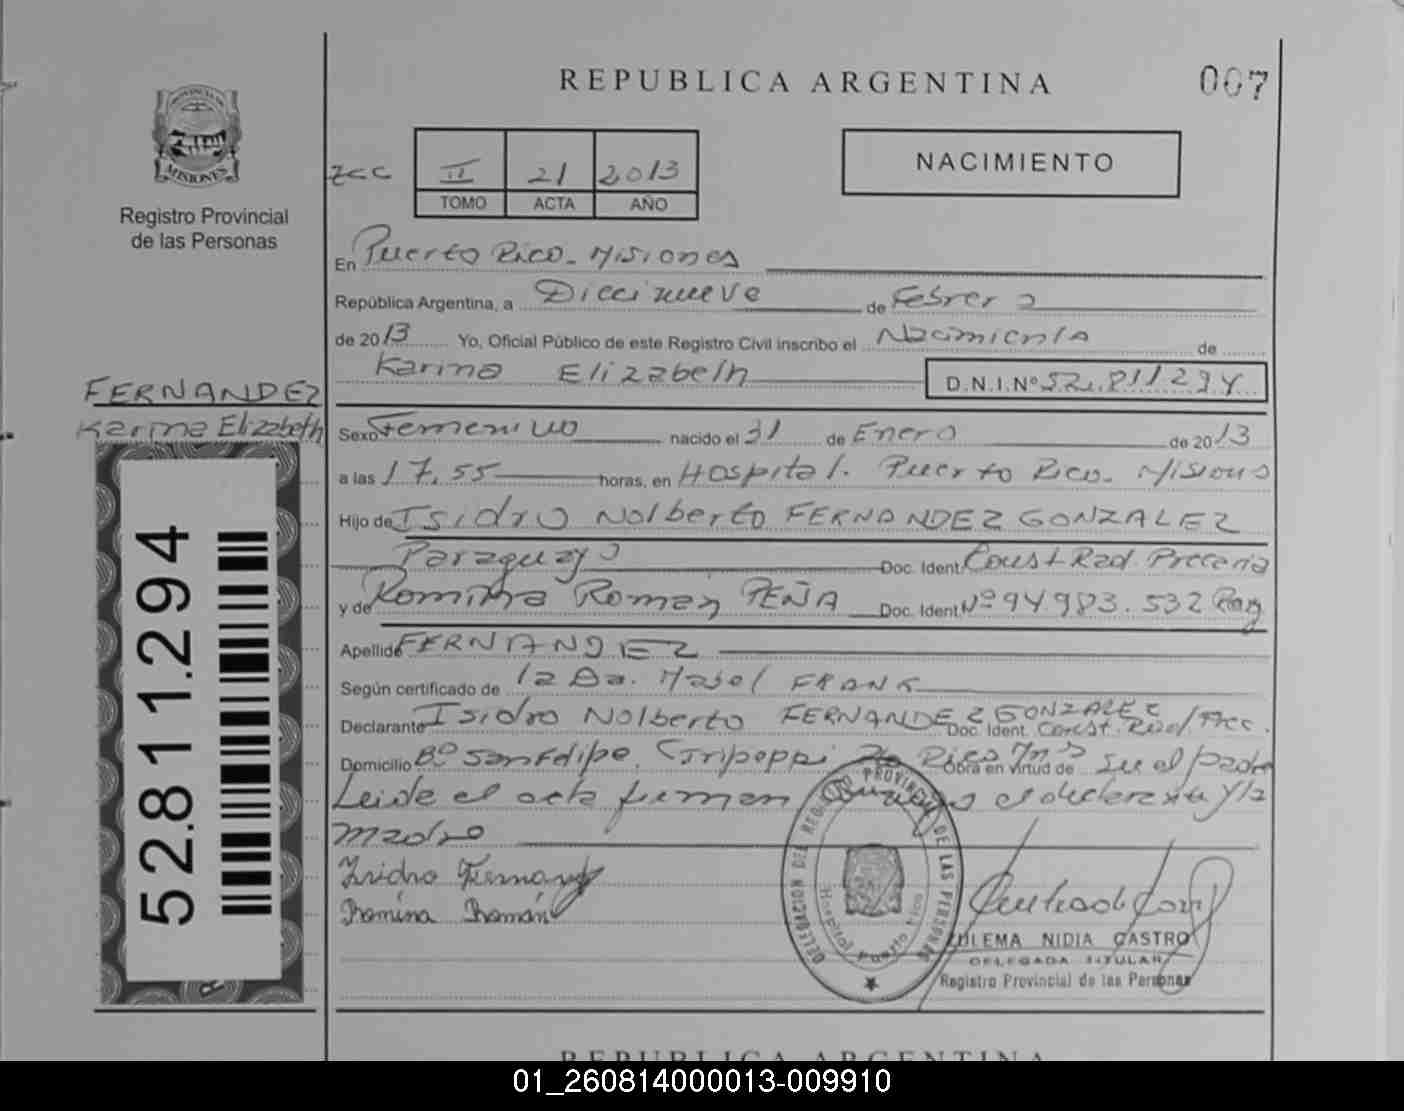 REPUBLICA ARGENTINA
007
PROVINCIA DE
MISIONES
Registro Provincial
de las Personas
II 21 2013
TOMO ACTA AÑO
NACIMIENTO
En Puerto Rico - Misiones
República Argentina, a Diecinueve de Febrero
de 2013 Yo, Oficial Público de este Registro Civil inscribo el Nacimiento de
Karina Elizabeth D.N.I.Nº 52.811294
FERNANDEZ
Karina Elizabeth
Sexo Femenino nacido el 31 de Enero de 2013
a las 17.55 horas, en Hospital. Puerto Rico - Misiones
Hijo de Isidro Nolberto FERNANDEZ GONZALEZ
Paraguayo Doc. Ident. Const Rad. Precaria
y de Romina Roman PEÑA Doc. Ident. Nº 94983.532
Apellido FERNANDEZ
Según certificado de la Dra. Mabel FRANK
Declarante Isidro Nolberto FERNANDEZ GONZALEZ Doc. Ident. Const. Rad/Prec.
Domicilio Bº San Felipe. Obra en virtud de Ser el padre
Leida el acta firman el declarante y la
madre
Isidro Fernandez
Romina Román
52.811.294
DELEGACION DEL REGISTRO PROVINCIAL DE LAS PERSONAS
Hospital Puerto Rico
ZULEMA NIDIA CASTRO
DELEGADA TITULAR
Registro Provincial de las Personas
REPUBLICA ARGENTINA
01_260814000013-009910